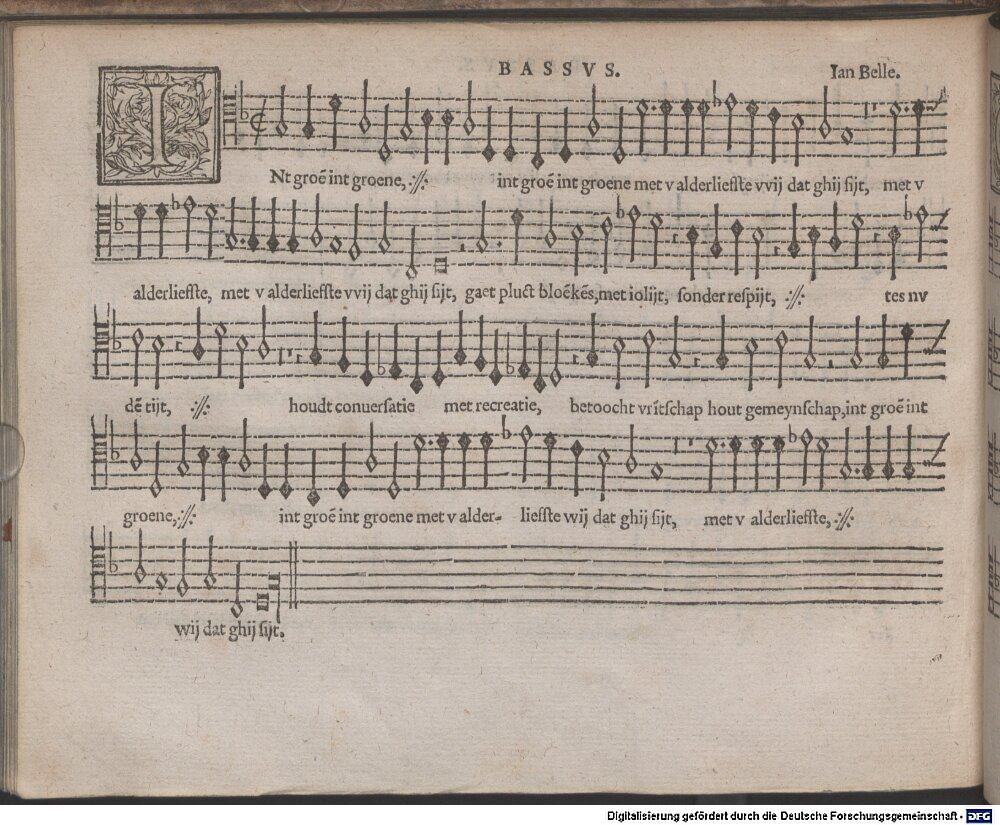 BASSVS. Ian Belle.
INt groẽ int groene, :/: int groẽ int groene met v alderliefste vvij dat ghij sijt, met v
alderliefste, met v alderliefste vvij dat ghij sijt, gaet pluct bloẽkẽs, met iolijt, sonder respijt, :/: tes nv
dẽ tijt, :/: houdt conuersatie met recreatie, betoocht vrĩtschap hout gemeynschap, int groẽ int
groene, :/: int groẽ int groene met v alder- liefste wij dat ghij sijt, met v alderliefste, :/:
wij dat ghij sijt.
Digitalisierung gefördert durch die Deutsche Forschungsgemeinschaft - DFG